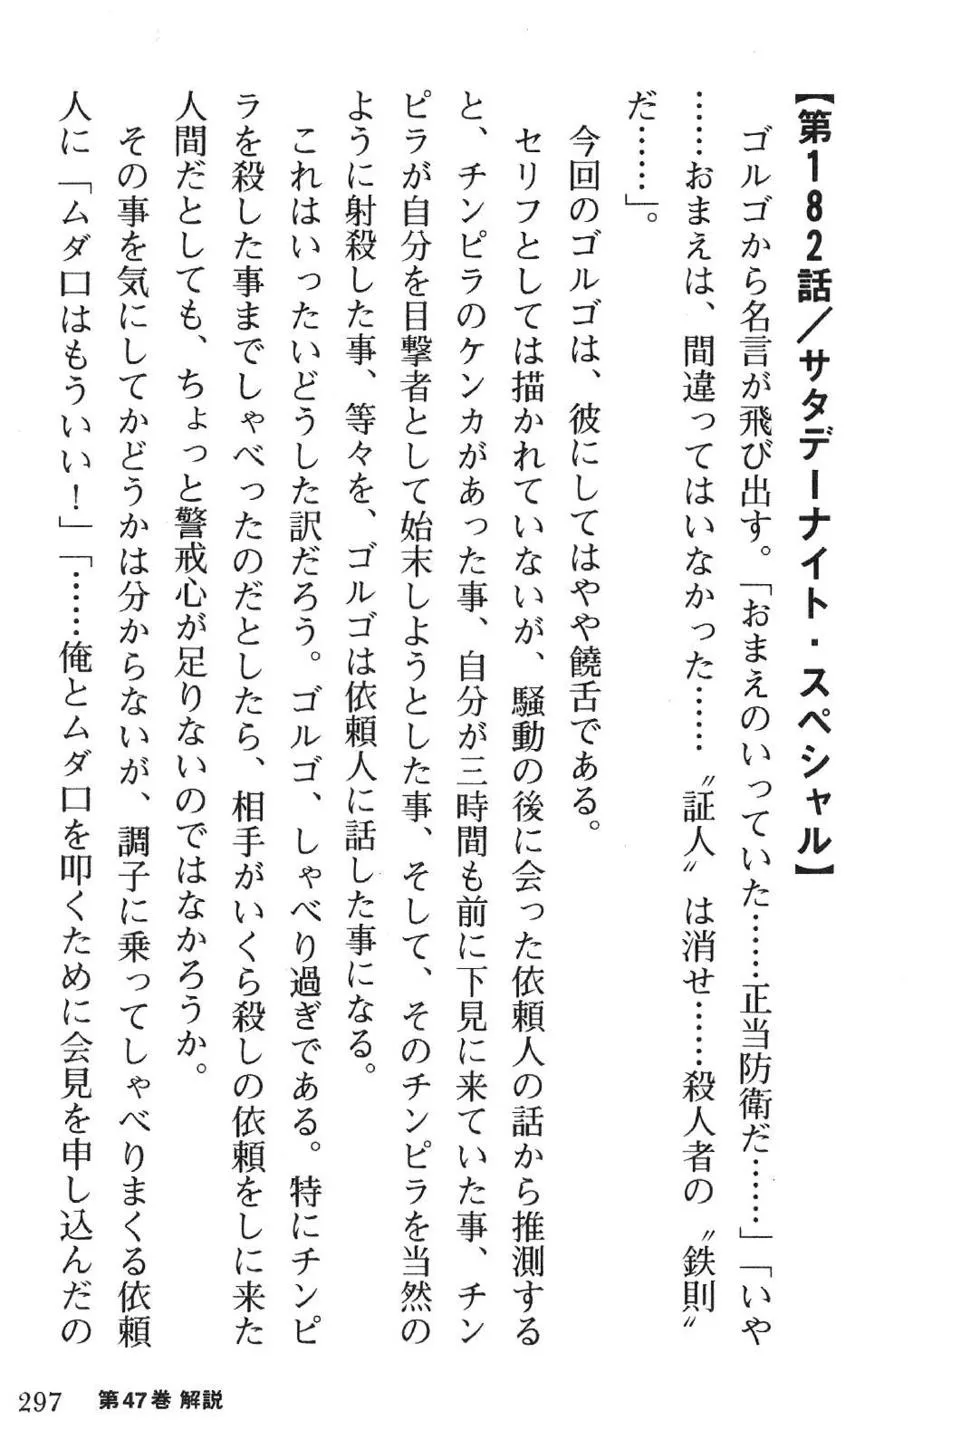 【第182話／サタデーナイト・スペシャル】
　ゴルゴから名言が飛び出す。「おまえのいっていた……正当防衛だ……」「いや
……おまえは、間違ってはいなかった……〝証人〟は消せ……殺人者の〝鉄則〟
だ……」。
　今回のゴルゴは、彼にしてはやや饒舌である。
　セリフとしては描かれていないが、騒動の後に会った依頼人の話から推測する
と、チンピラのケンカがあった事、自分が三時間も前に下見に来ていた事、チン
ピラが自分を目撃者として始末しようとした事、そして、そのチンピラを当然の
ように射殺した事、等々を、ゴルゴは依頼人に話した事になる。
　これはいったいどうした訳だろう。ゴルゴ、しゃべり過ぎである。特にチンピ
ラを殺した事までしゃべったのだとしたら、相手がいくら殺しの依頼をしに来た
人間だとしても、ちょっと警戒心が足りないのではなかろうか。
　その事を気にしてかどうかは分からないが、調子に乗ってしゃべりまくる依頼
人に「ムダ口はもういい！」「……俺とムダ口を叩くために会見を申し込んだの
297　第47巻 解説